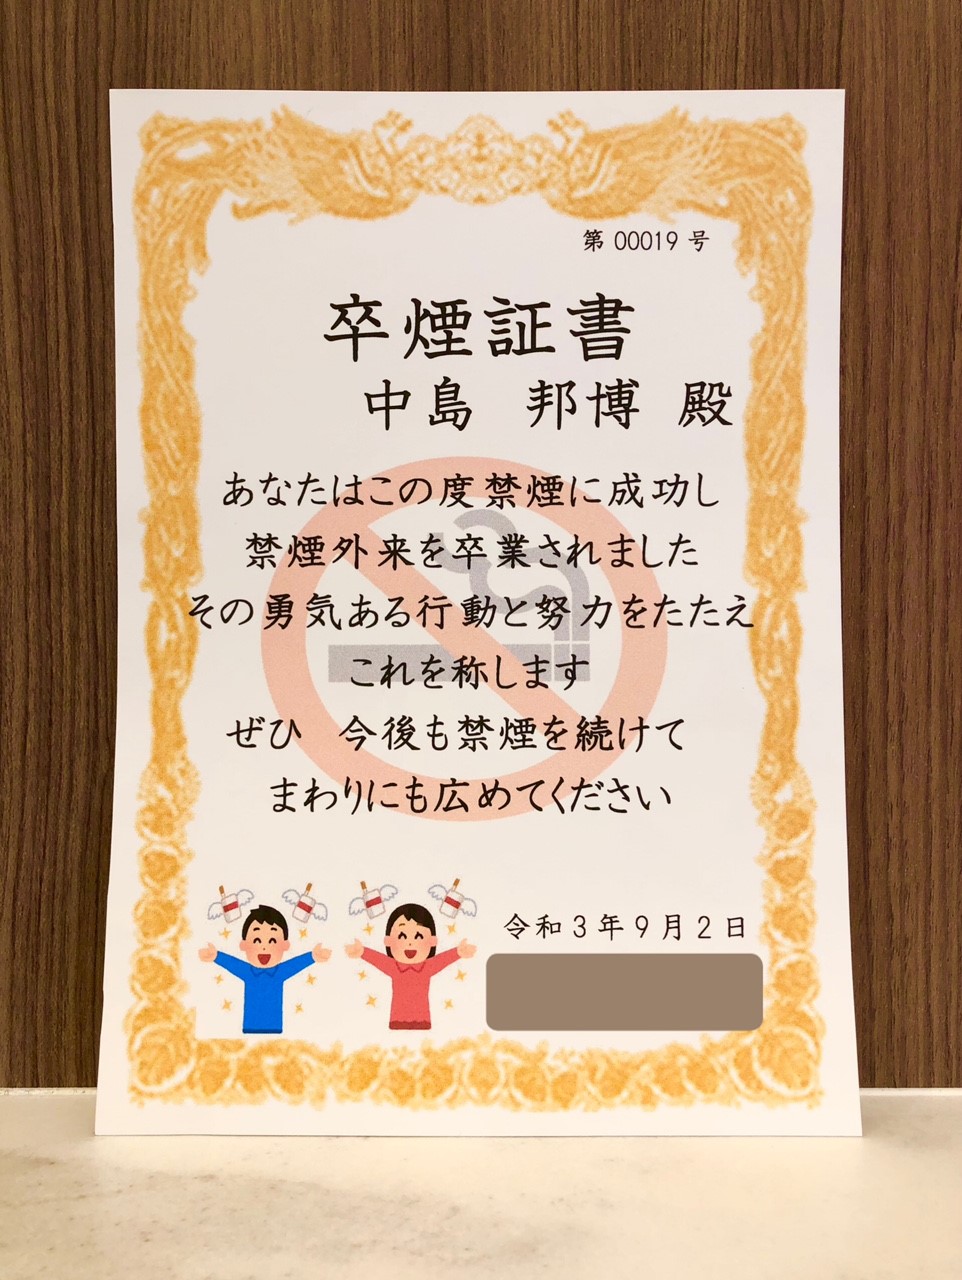 第 00019 号
卒煙証書
中島 邦博 殿
あなたはこの度禁煙に成功し
禁煙外来を卒業されました
その勇気ある行動と努力をたたえ
これを称します
ぜひ 今後も禁煙を続けて
まわりにも広めてください
令和3年9月2日